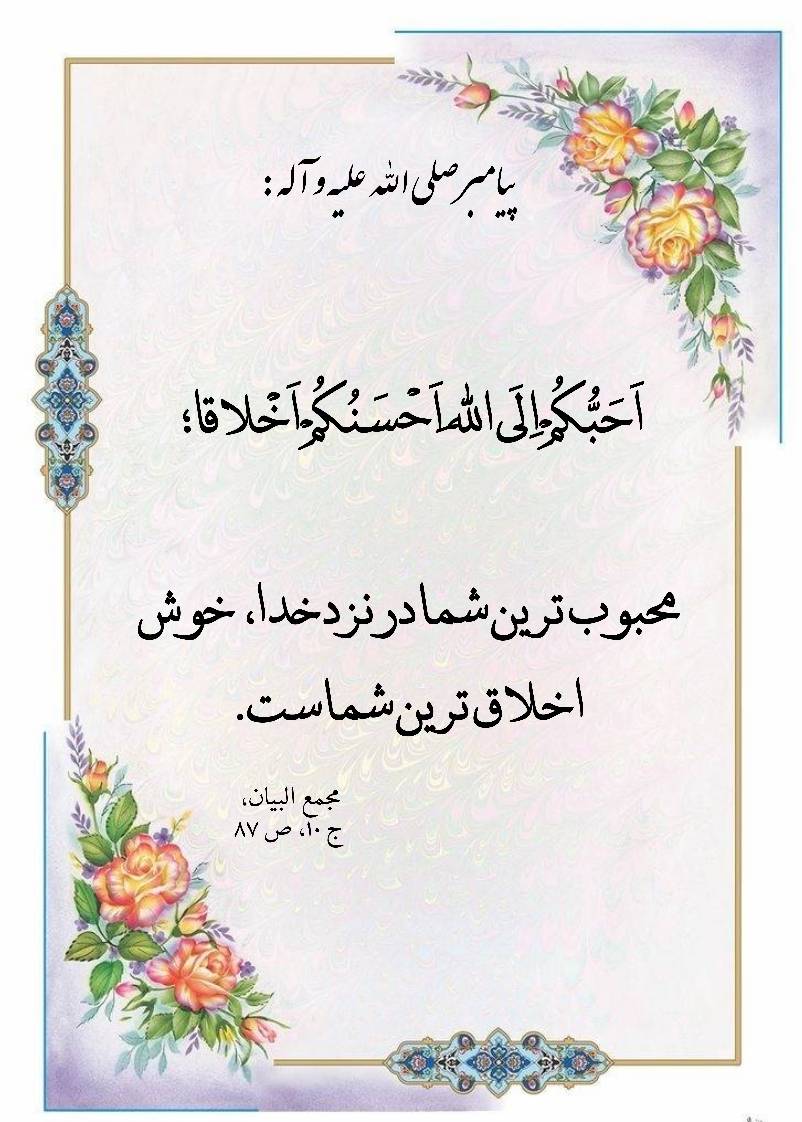 پیامبر صلی الله علیه و آله:
اَحَبُّکُمْ اِلَی الله اَحْسَنُکُمْ اَخْلاقا؛
محبوب‌ترین شما در نزد خدا، خوش
اخلاق‌ترین شماست.
مجمع البیان،
ج ۱۰، ص ۸۷